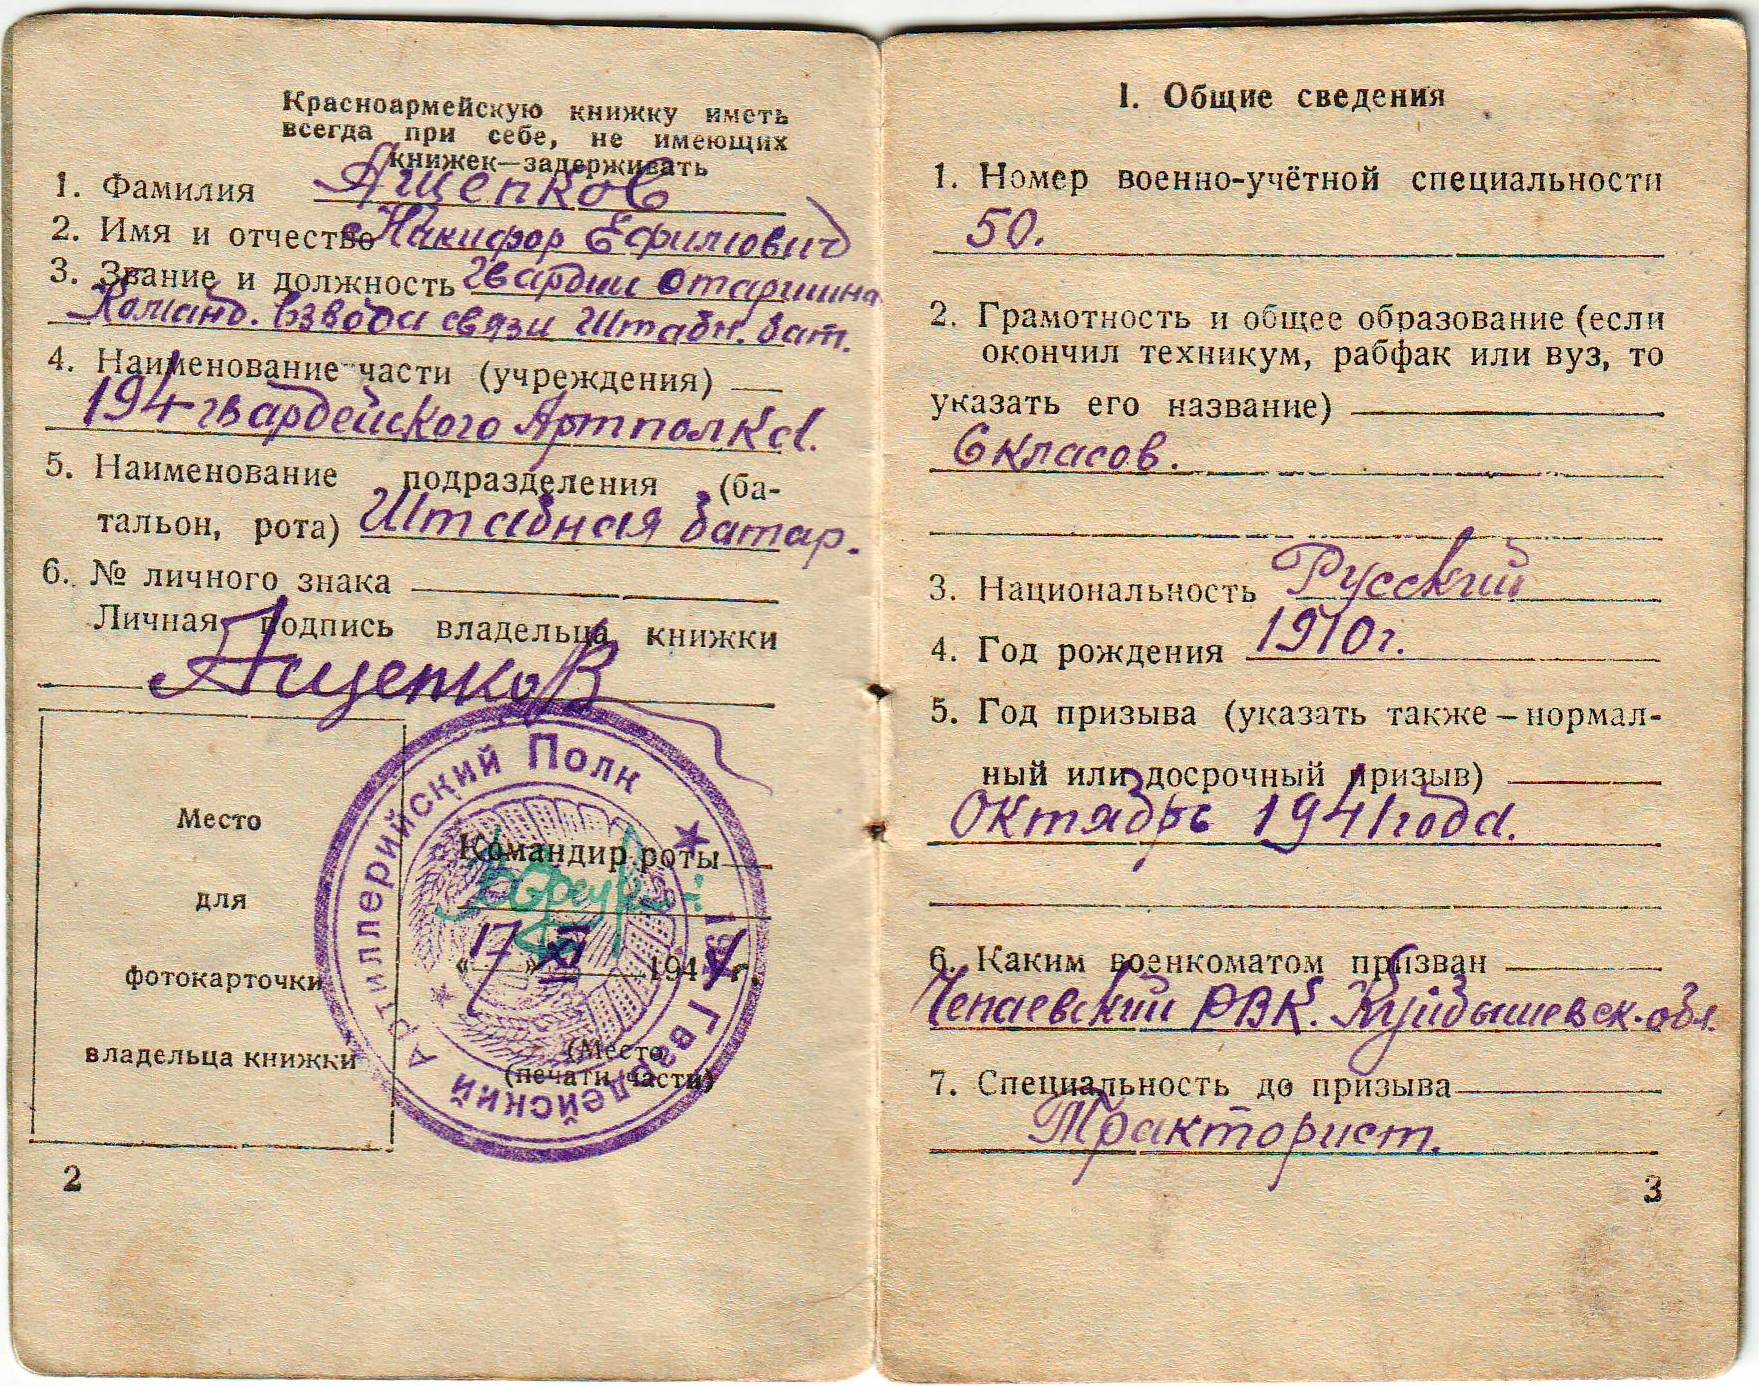 Красноармейскую книжку иметь
всегда при себе, не имеющих
книжек—задерживать
1. Фамилия Ащепков
2. Имя и отчество Никифор Ефимович
3. Звание и должность Гвардии Старшина
Команд. взвода связи Штабн. бат.
4. Наименование части (учреждения)
194 гвардейского Артполка.
5. Наименование подразделения (ба-
тальон, рота) Штабная батар.
6. № личного знака
Личная подпись владельца книжки
Ащепков
Место
для
фотокарточки
владельца книжки
Командир роты
«17» XI 194 г.
(Место
(печати части)
Артиллерийский Полк ★ Гвардейский ★
2
I. Общие сведения
1. Номер военно-учётной специальности
50.
2. Грамотность и общее образование (если
окончил техникум, рабфак или вуз, то
указать его название)
6 класов.
3. Национальность Русский
4. Год рождения 1910 г.
5. Год призыва (указать также – нормал-
ный или досрочный призыв)
Октябрь 1941 года.
6. Каким военкоматом призван
Чепаевский РВК. Куйбышевск. обл.
7. Специальность до призыва
Тракторист.
3